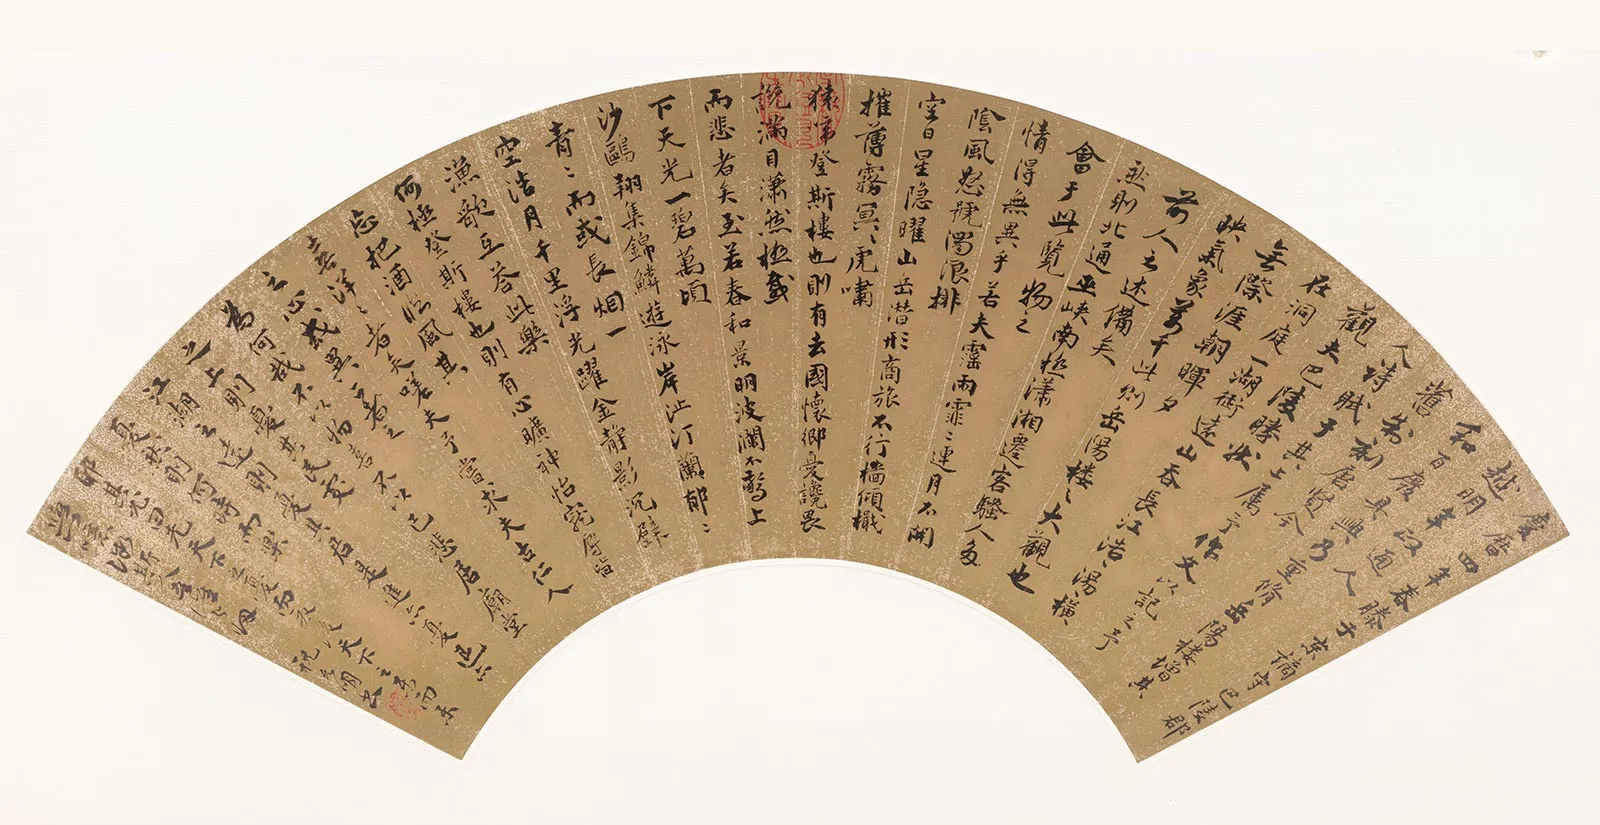 慶曆四年春滕子京謫守巴陵郡
越明年政通人
和百廢具興乃重脩岳陽樓增其
舊制刻唐賢今
人詩賦于其上属予作文以記之予
觀夫巴陵勝狀
在洞庭一湖銜遠山吞長江浩、湯、橫
無際涯朝暉夕
映氣象萬千此則岳陽樓之大觀也
前人之述備矣
然則北通巫峽南極瀟湘遷客騷人多
會于此覽物之
情得無異乎若夫霪雨霏、連月不開
陰風怒號濁浪排
空日星隱曜山岳潛形商旅不行檣傾檝
摧薄霧冥、虎嘯
猿啼登斯樓也則有去國懷鄉憂讒畏
譏滿目瀟然極感
而悲者矣至若春和景明波瀾不驚上
下天光一碧萬頃
沙鷗翔集錦鱗遊泳岸芷汀蘭郁、
青、而或長烟一
空浩月千里浮光躍金靜影沉璧
漁歌互荅此樂
何極登斯樓也則有心曠神怡寵辱皆
忘把酒臨風其
喜洋、者矣嗟夫予嘗求夫古仁人
之心或異二者之
為何哉不以物喜不以己悲居廟堂
之上則憂其民處
江湖之遠則憂其君是進亦憂退亦
憂然則何時而樂
耶其必曰先天下之憂而憂後天下之樂而樂
噫微斯人吾誰與歸
祝允明書